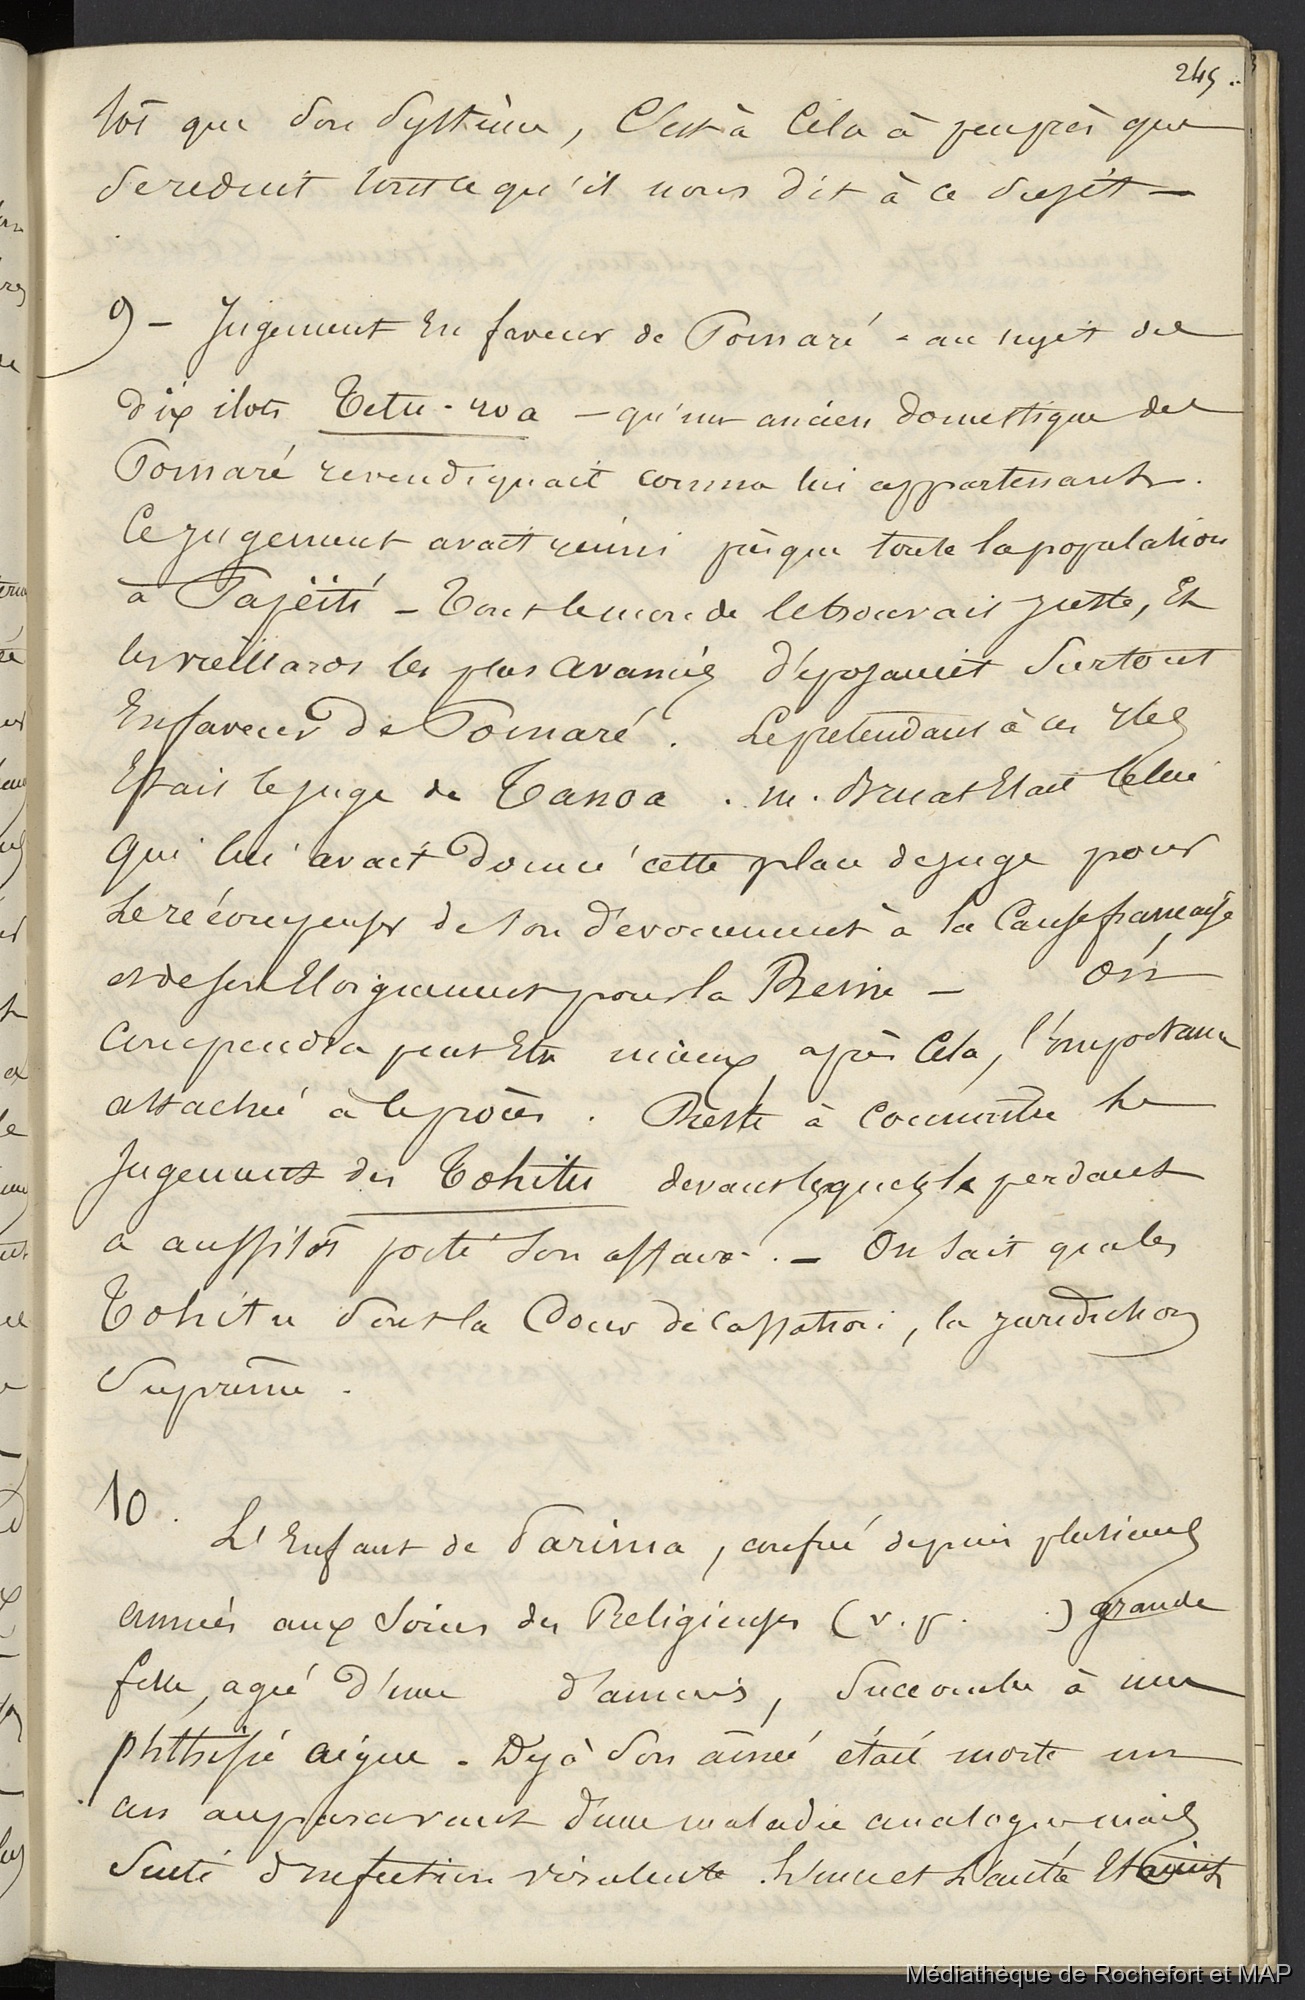 245.
tot que son système, C'est à Cela à peuprès que
se reduit tout ce qu'il nous dit à ce sujèt —
9 — Jugement En faveur de Pomaré - au sujet des
dix ilots Tetu-roa — qu'un ancien domestique de
Pomaré revendiquait comme lui appartenant.
Ce jugement avait réuni presque toute la population
à Papéiti — Tout le monde le trouvait juste, Et
les vieillards les plus avancés déposaient surtout
En faveur De Pomaré. Le prétendant à ces Iles
Etait le juge de Tanoa. m. Bruat Etait Celui
qui lui avait donné cette place de juge pour
Le récompenser de son dévouement à la Cause française
et de son Eloignement pour la Reine — On
comprendra peut Etre mieux après Cela, l'importance
attachée à ce procès. Reste à Connaitre Le
Jugement des Tohitu devant lesquels le perdant
a aussitôt porté son affaire. — On sait que les
Tohitu sont la Cour de Cassation, la juridiction
Suprême.
10. L'Enfant de Darima, confié depuis plusieurs
années aux soins des Religieuses (v. p. ) grande
fille, agée d'une d'années, succombe à une
phthisie aigue. Déjà son ainée était morte un
an auparavant d'une maladie analogue mais
Suite d'infection virulente. L'une et L'autre Etaient
Médiathèque de Rochefort et MAP